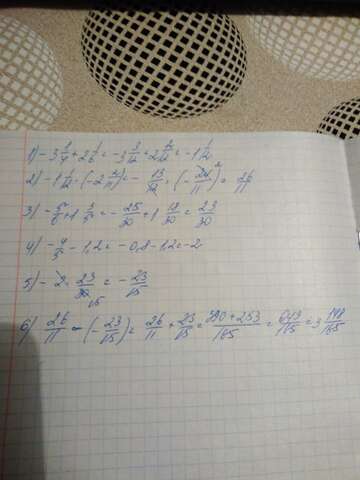 1) - 3 1/4 + 2 1/6 = - 3 3/12 + 2 2/12 = - 1 1/12
2) - 1 1/12 · (- 2 2/11) = - 13/12 · (- 24/11) 2 = 26/11
3) - 5/6 + 1 3/5 = - 25/30 + 1 18/30 = 23/30
4) - 4/5 - 1,2 = - 0,8 - 1,2 = - 2
5) - 2 · 23/30 15 = - 23/15
6) 26/11 - (- 23/15) = 26/11 + 23/15 = 390 + 253/165 = 643/165 = 3 148/165